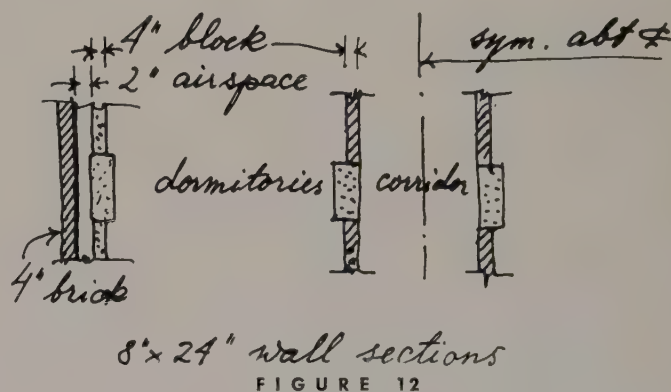 4" block
sym. abt ℄
2" airspace
dormitories
corridor
4" brick
8" x 24" wall sections
FIGURE 12